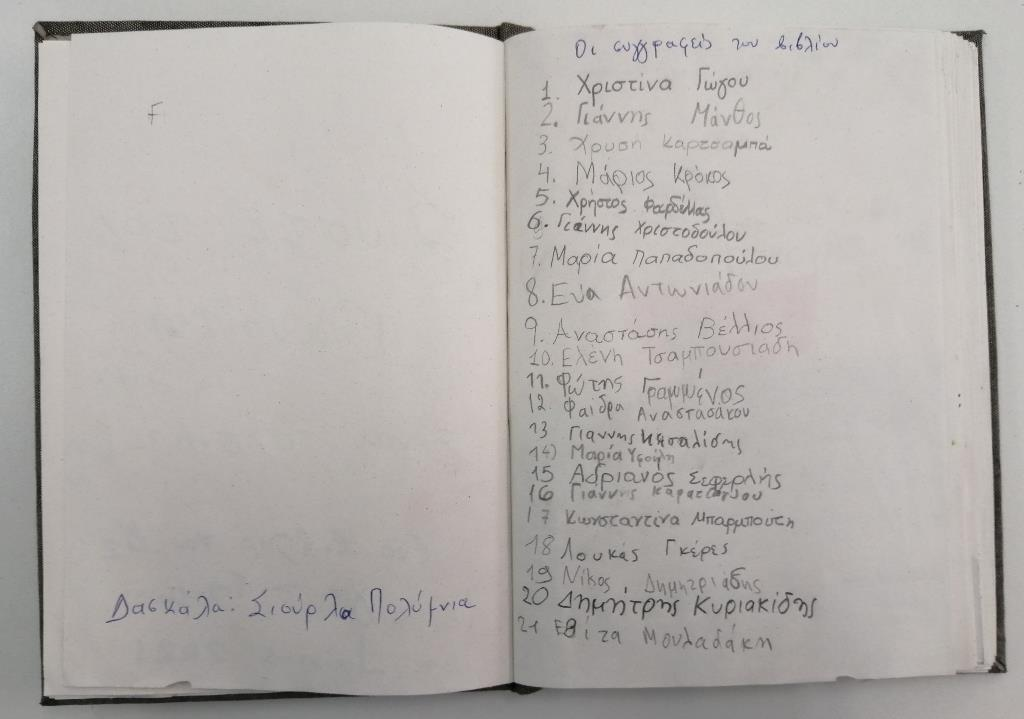 F
Δασκάλα: Σιούρλα Πολύμνια
Οι συγγραφείς του βιβλίου
1. Χριστίνα Γώγου
2. Γιάννης Μάνθος
3. Χρυσή Καρτσαμπά
4. Μάριος Κρόκος
5. Χρήστος Φαρδέλλας
6. Γιάννης Χριστοδούλου
7. Μαρία Παπαδοπούλου
8. Εύα Αντωνιάδου
9. Αναστάσης Βέλλιος
10. Ελένη Τσαμπουσιάδη
11. Φώτης Γραμμένος
12. Φαίδρα Αναστασάκου
13 Γιαννης
14) Μαρία
15 Αδριανός Σεφερλής
16 Γιαννης
17 Κωνσταντίνα Μπαρμπούτη
18 Λουκάς Γκέρες
19 Νίκος Δημητριάδης
20 Δημήτρης Κυριακίδης
21 Εβίτα Μουλαδάκη